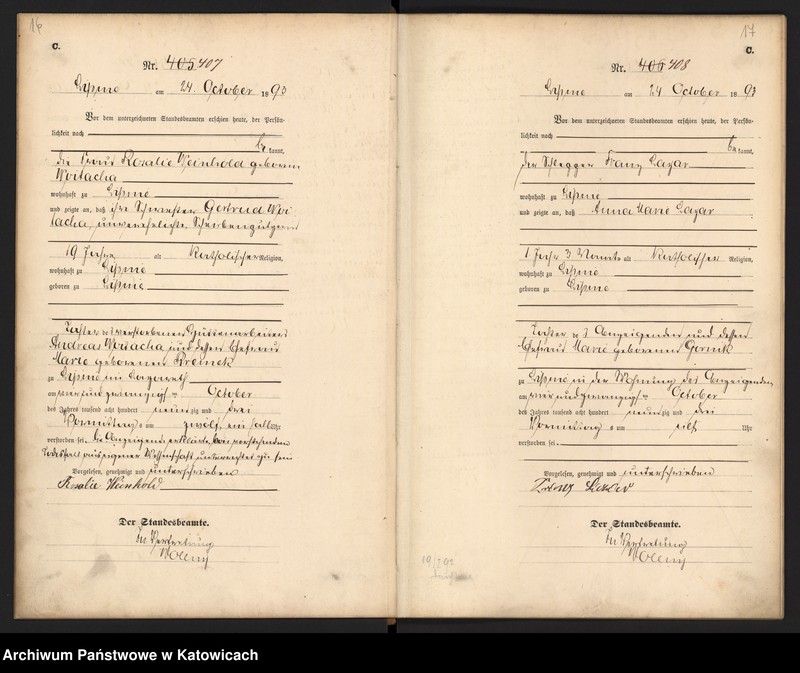 16
C.
Nr. 405 407
Lipine am 24 October 1893
Vor dem unterzeichneten Standesbeamten erschien heute, der Persön-
lichkeit nach
be kannt,
die Frau Rosalie Weinhold geborene
Woitacha
wohnhaft zu Lipine
und zeigte an, daß ihre Schwester Gertrud Woi-
tacha, unverehelichte
19 Jahre alt Katholischer Religion,
wohnhaft zu Lipine
geboren zu Lipine
Tochter des verstorbenen Hüttenarbeiters
Andreas Woitacha und dessen Ehefrau
Marie geborenen
zu Lipine im Lazareth
am vier und zwanzigsten October
des Jahres tausend acht hundert neun zig und drei
Vormittag s um zwölf ein halb Uhr
verstorben sei. Die Anzeigende erklärte, von vorstehendem
Todesfall aus eigener Wissenschaft unterrichtet zu sein
Vorgelesen, genehmigt und unterschrieben
Rosalie Weinhold
Der Standesbeamte.
In Vertretung
17
C.
Nr. 406 408
Lipine am 24 October 1893
Vor dem unterzeichneten Standesbeamten erschien heute, der Persön-
lichkeit nach
be kannt,
der Schlepper Franz Lazar
wohnhaft zu Lipine
und zeigte an, daß Anna Marie Lazar
1 Jahr 3 Monate alt Katholischer Religion,
wohnhaft zu Lipine
geboren zu Lipine
Tochter des Anzeigenden und dessen
Ehefrau Marie geborenen Gornik
zu Lipine in der Wohnung des Anzeigenden
am vier und zwanzigsten October
des Jahres tausend acht hundert neun zig und drei
Vormittag s um elf Uhr
verstorben sei.
Vorgelesen, genehmigt und unterschrieben
Franz Lazar
Der Standesbeamte.
In Vertretung
Archiwum Państwowe w Katowicach